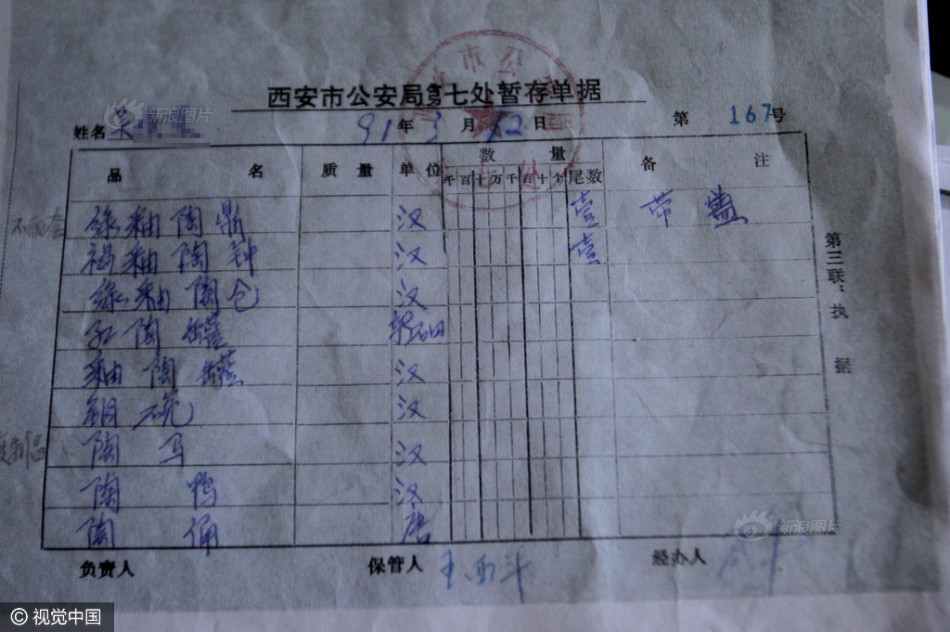 西安市公安局第七处暂存单据
姓名 吴 91年3月12日 第167号
品名 质量 单位 数量 备注
千百十万千百十个尾数
绿釉陶鼎 汉 壹 带盖
褐釉陶钟 汉 壹
绿釉陶仓 汉
红陶罐
釉陶罐 汉
铜碗 汉
陶马 汉
陶鸭 汉
陶俑 唐
第三联：执据
负责人 保管人 王西斗 经办人
新浪图片
新浪图片
© 视觉中国